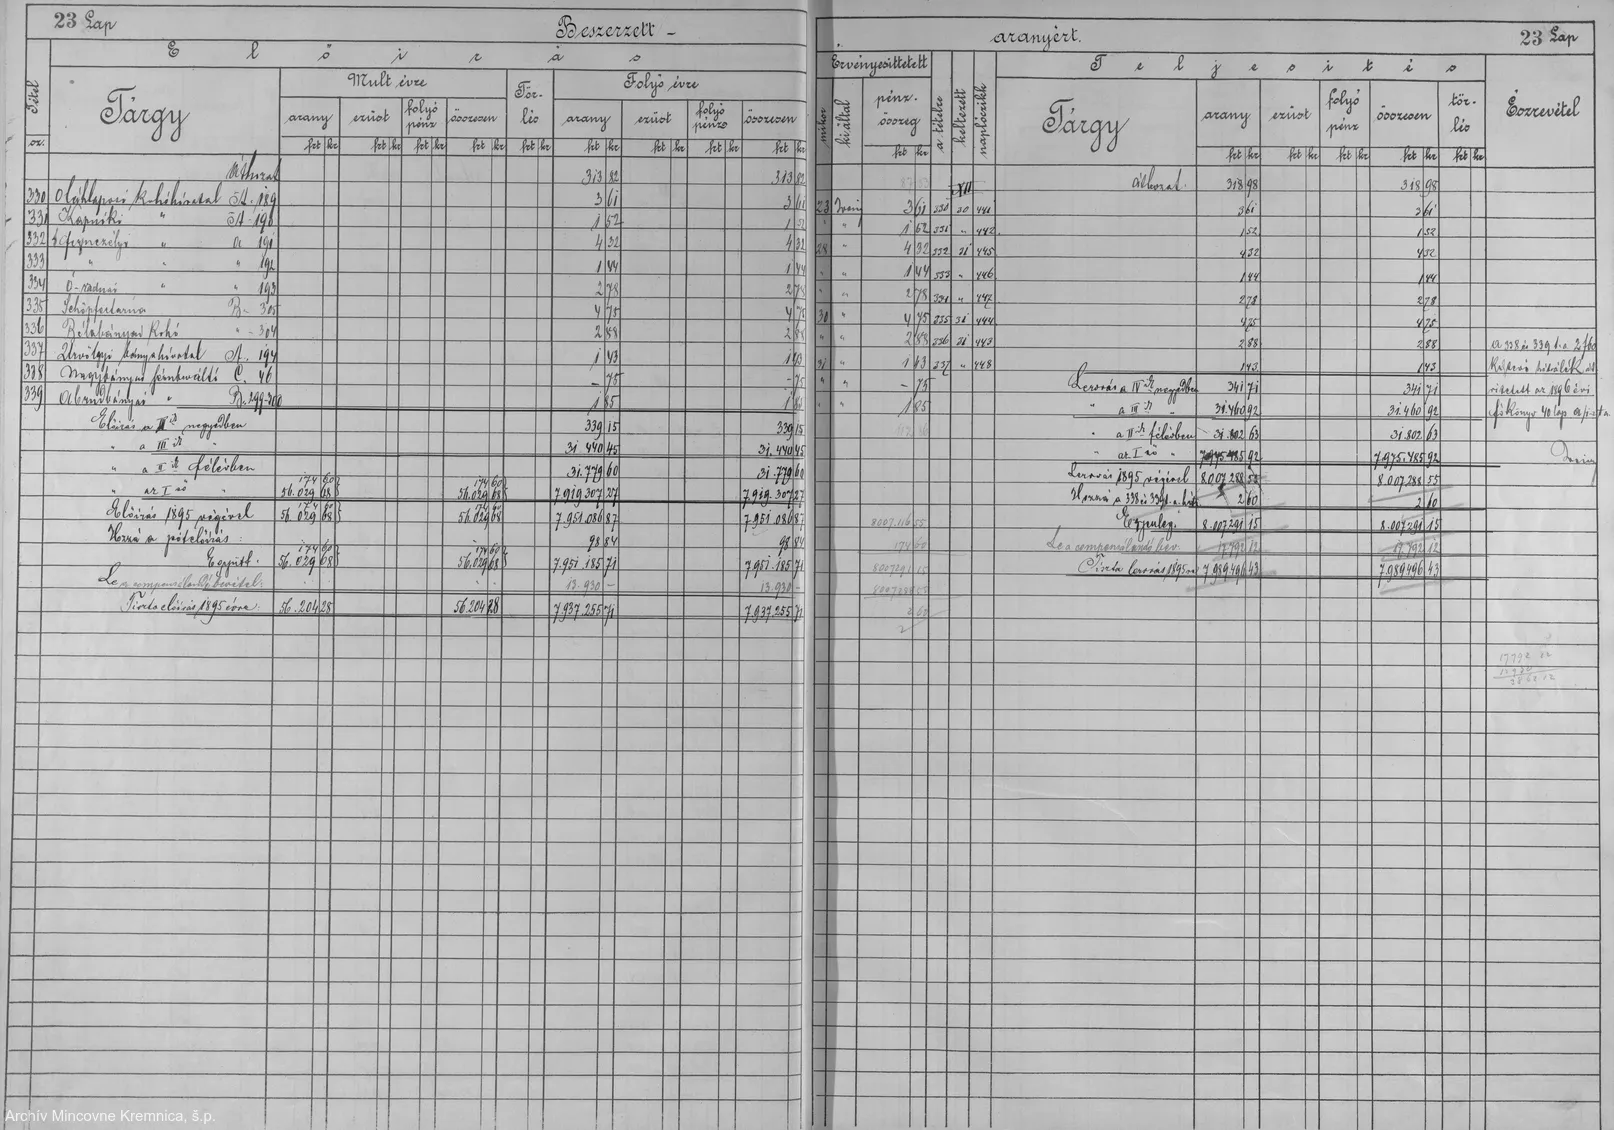 23 Lap
Beszerzett -
Előirás
Tétel sz.
Tárgy
Mult évre
arany
ezüst
folyó pénz
összesen
Tör-
lés
Folyó évre
arany
ezüst
folyó pénz
összesen
frt kr
Áthozat 313 82 313 82
330 Oláhláposi kohóhivatal A. 189 3 61 3 61
331 Kapniki " A. 190 1 52 1 52
332 " a 191 4 32 4 32
333 " " " 192 1 44 1 44
334 Ó-radnai " " 193 2 78 2 78
335 Schöpfertárna B. 305 4 75 4 75
336 Bélabányai Kohó " 304 2 88 2 88
337 Urvölgyi bányahivatal A. 194 1 43 1 43
338 Nagybányai fémbeváltó C. 46 - 75 - 75
339 Abrudbányai " B. 299-300 1 85 1 85
Előirás a negyedben 339 15 339 15
" a III ik " 31.440 45 31.440 45
" a II ik félévben 31.779 60 31.779 60
" az I ső " 174 60 56.029 68 174 60 56.029 68 7,919.307 27 7,919.307 27
Előirás 1895 végével 174 60 56.029 68 174 60 56.029 68 7,951.086 87 7,951.086 87
Hozzá a pótelőirás: 98 84 98 84
Együtt. 174 60 56.029 68 174 60 56.029 68 7,951.185 71 7,951.185 71
Le a companálandó bevétel: 13.930 - 13.930 -
Tiszta előirás 1895 évre: 56.204 28 56.204 28 7,937.255 71 7,937.255 71
aranyért.
23 Lap
Érvényesittetett
mikor
ki által
pénz-
összeg
a tételre
keltezett
naplócikk
Teljesités
Tárgy
arany
ezüst
folyó pénz
összesen
tör-
lés
Észrevétel
frt kr
XII
Áthozat. 318 98 318 98
23 3 61 330 30 441 3 61 3 61
" " 1 52 331 " 442 1 52 1 52
28 " 4 32 332 31 445 4 32 4 32
" " 1 44 333 " 446 1 44 1 44
" " 2 78 334 " 447 2 78 2 78
30 " 4 75 335 31 444 4 75 4 75
" " 2 88 336 31 443 2 88 2 88
31 " 1 43 337 " 448 1 43 1 43
" " - 75 Lerovás a IV ik negyedben 341 71 341 71
" " 1 85 " a III ik " 31.460 92 31.460 92
" a II ik félévben 31.802 63 31.802 63
" az I ső " 7,975.485 92 7,975.485 92
Lerovás 1895 végével 8,007.288 55 8,007.288 55
Hozzá a 338 és 339 t. a. 2 60 2 60
8007.116 55 Egyuleg. 8.007.291 15 8.007.291 15
174 60 Le a companálandó bev. 17.792 12 17.792 12
8007291 15 Tiszta lerovás 1895 re 7,989.496 43 7,989.496 43
2 60
a 338 és 339 t. a. 2 f 60
az 1896 évi
főkönyv 40 lap
17792 12
Archív Mincovne Kremnica, š.p.